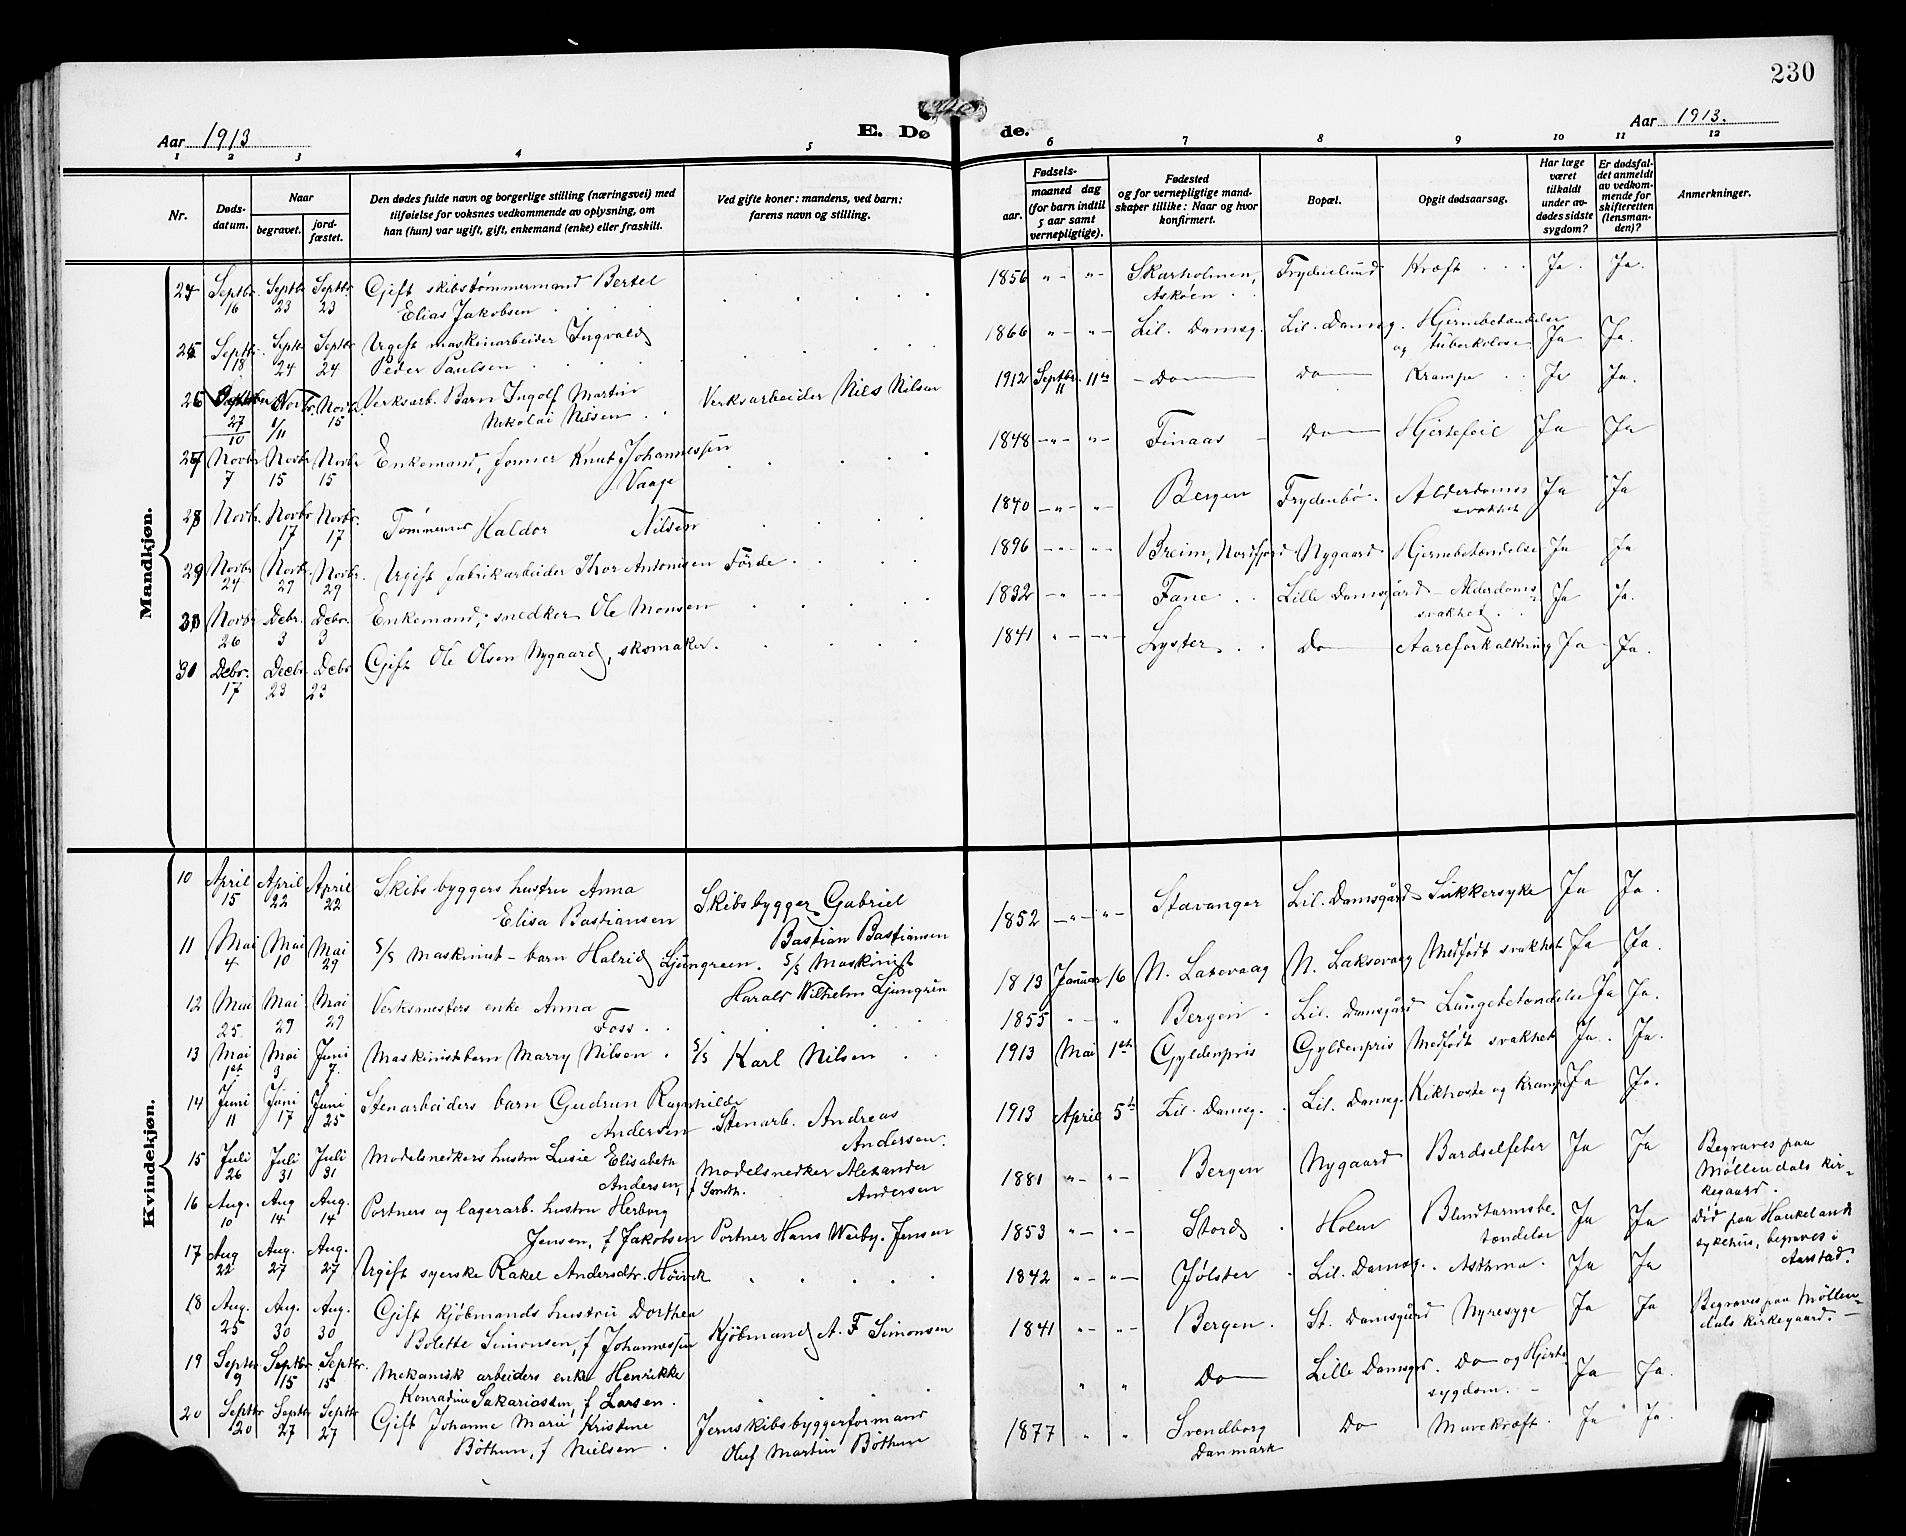 230
Aar 1913
E. Dø
de.
Aar 1913.
1 2 3 4 5 6 7 8 9 10 11 12
Nr.
Døds-
datum.
Naar
begravet.
jord-
fæstet.
Den dødes fulde navn og borgerlige stilling (næringsvei) med
tilføielse for voksnes vedkommende av oplysning, om
han (hun) var ugift, gift, enkemand (enke) eller fraskilt.
Ved gifte koner: mandens, ved barn:
farens navn og stilling.
Fødsels-
aar.
maaned dag
(for barn indtil
5 aar samt
vernepligtige).
Fødested
og for vernepligtige mand-
skaper tillike: Naar og hvor
konfirmert.
Bopæl.
Opgit dødsaarsag.
Har læge
været
tilkaldt
under av-
dødes sidste
sygdom?
Er dødsfal-
det anmeldt
av vedkom-
mende for
skifteretten
(lensman-
den)?
Anmerkninger.
Mandkjøn.
24 Septbr. Septbr Septbr. Gift skibstømmermand Bertel 1856 Skarholmen, Frydenlund Kræft Ja. Ja.
16 23 23 Elias Jakobsen Askøen
25 Septbr. Septbr Septbr Ugift maskinarbeider Ingvald 1866 Lil. Damsg. Lil. Damsg. Hjernebetændelse
18 24 24 Peder Paulsen og tuberkulose Ja Ja.
26 Novbr. Novbr. Verksarb. Barn Ingolf Martin Verksarbeider Nils Nilsen 1912 Septbr. 11te Do Do Krampe Ja Ja.
27/10 1/11 15 Nikolai Nilsen 11
27 Novbr Novbr Novbr Enkemand, former Knut Johannessen 1848 Finaas Do Hjertefeil Ja Ja
7 15 15 Vaage
28 Novbr. Novbr. Novbr. Tømmerm Haldor Nilsen 1840 Bergen Frydenbø. Alderdoms Ja Ja
17 17 svakhet
29 Novbr Novbr. Novbr. Ugift fabrikarbeider Thor Antonisen Förde 1896 Breim, Nordfjord Nygaard Hjernebetændelse Ja Ja
24 29 29
30 Novbr Debr. Debr. Enkemand, snedker Ole Monsen 1832 Fane Lille Damsgård Alderdoms- Ja Ja.
26 3 3 svakhet
30 Debr. Decbr. Debr Gift Ole Olsen Nygaard, skomaker. 1841 Lyster Do Aareforkalkning Ja Ja.
17 23 23
Kvindekjøn.
10 April April April Skibsbyggers hustru Anna Skibsbygger Gabriel 1852 Stavanger Lil. Damsgård Sukkersyke Ja Ja.
15 22 22 Elisa Bastiansen Bastian Bastiansen
11 Mai Mai Mai S/S Maskinist-barn Halrid Ljungreen. S/S Maskinist 1813 Januar 16 N. Laxevaag N. Laksevaag Medfødt svakhet Ja Ja.
4 10 29 Harald Wilhelm Ljungrén
12 Mai Mai Mai Verksmesters enke Anna 1855 Bergen Lil. Damsgård Lungebetændelse Ja Ja.
25 29 29 Foss
13 Mai Mai Juni Maskinistbarn Marry Nilsen S/S Karl Nilsen 1913 Mai 1ste Gyldenpris Gyldenpris Medfødt svakhet Ja. Ja.
1st 3 7
14 Juni Juni Juni Stenarbeiders barn Gudrun Ragnhilde 1913 April 5te Lil. Damsg. Lil. Damsg. Kikhoste og krampe Ja Ja.
11 17 25 Andersen Stenarb. Andreas
Andersen.
15 Juli Juli Juli Modelsnedkers hustru Lusie Elisabeth Modelsnedker Alexander 1881 Bergen Nygaard Bardselfeber Ja Ja Begraves paa
26 31 31 Andersen, Andersen Möllendals kir-
kegaard.
16 Aug. Aug Aug. Portners og lagerarb. hustru Herborg 1853 Stord Holen Blindtarmsbe- Ja Ja Död paa Haukeland
10 14 14 Jensen, f Jakobsen Portner Hans Jensen tændelse sykehus, begraves i
Aarstad.
17 Aug Aug. Aug. Ugift syerske Rakel Andersdtr. Høivik 1842 Jølster Lil. Damsg. Asthma. Ja Ja
22 27 27
18 Aug. Aug. Aug. Gift kjøbmands hustru Dorthea Kjøbmand A. F Simonsen 1841 Bergen. St. Damsgård Nyresyge Ja Ja Begraves paa Möllen-
25 30 30 Bolette Simonsen, f Johannessen dals kirkegaard.
19 Septbr Septbr. Septbr. Mekanisk arbeiders enke Henrikke Do Lille Damsgrd. Do og Hjerte- Ja Ja.
9 15 15 Konradine Sakariasen, f Larsen. sygdom.
20 Septbr Septbr Septbr Gift Johanne Marie Kristine Jernskibsbyggerformand 1877 Svendborg Do Mavekræft. Ja Ja.
20 27 27 Bøthun, f Nielsen Oluf Martin Bøthun Danmark